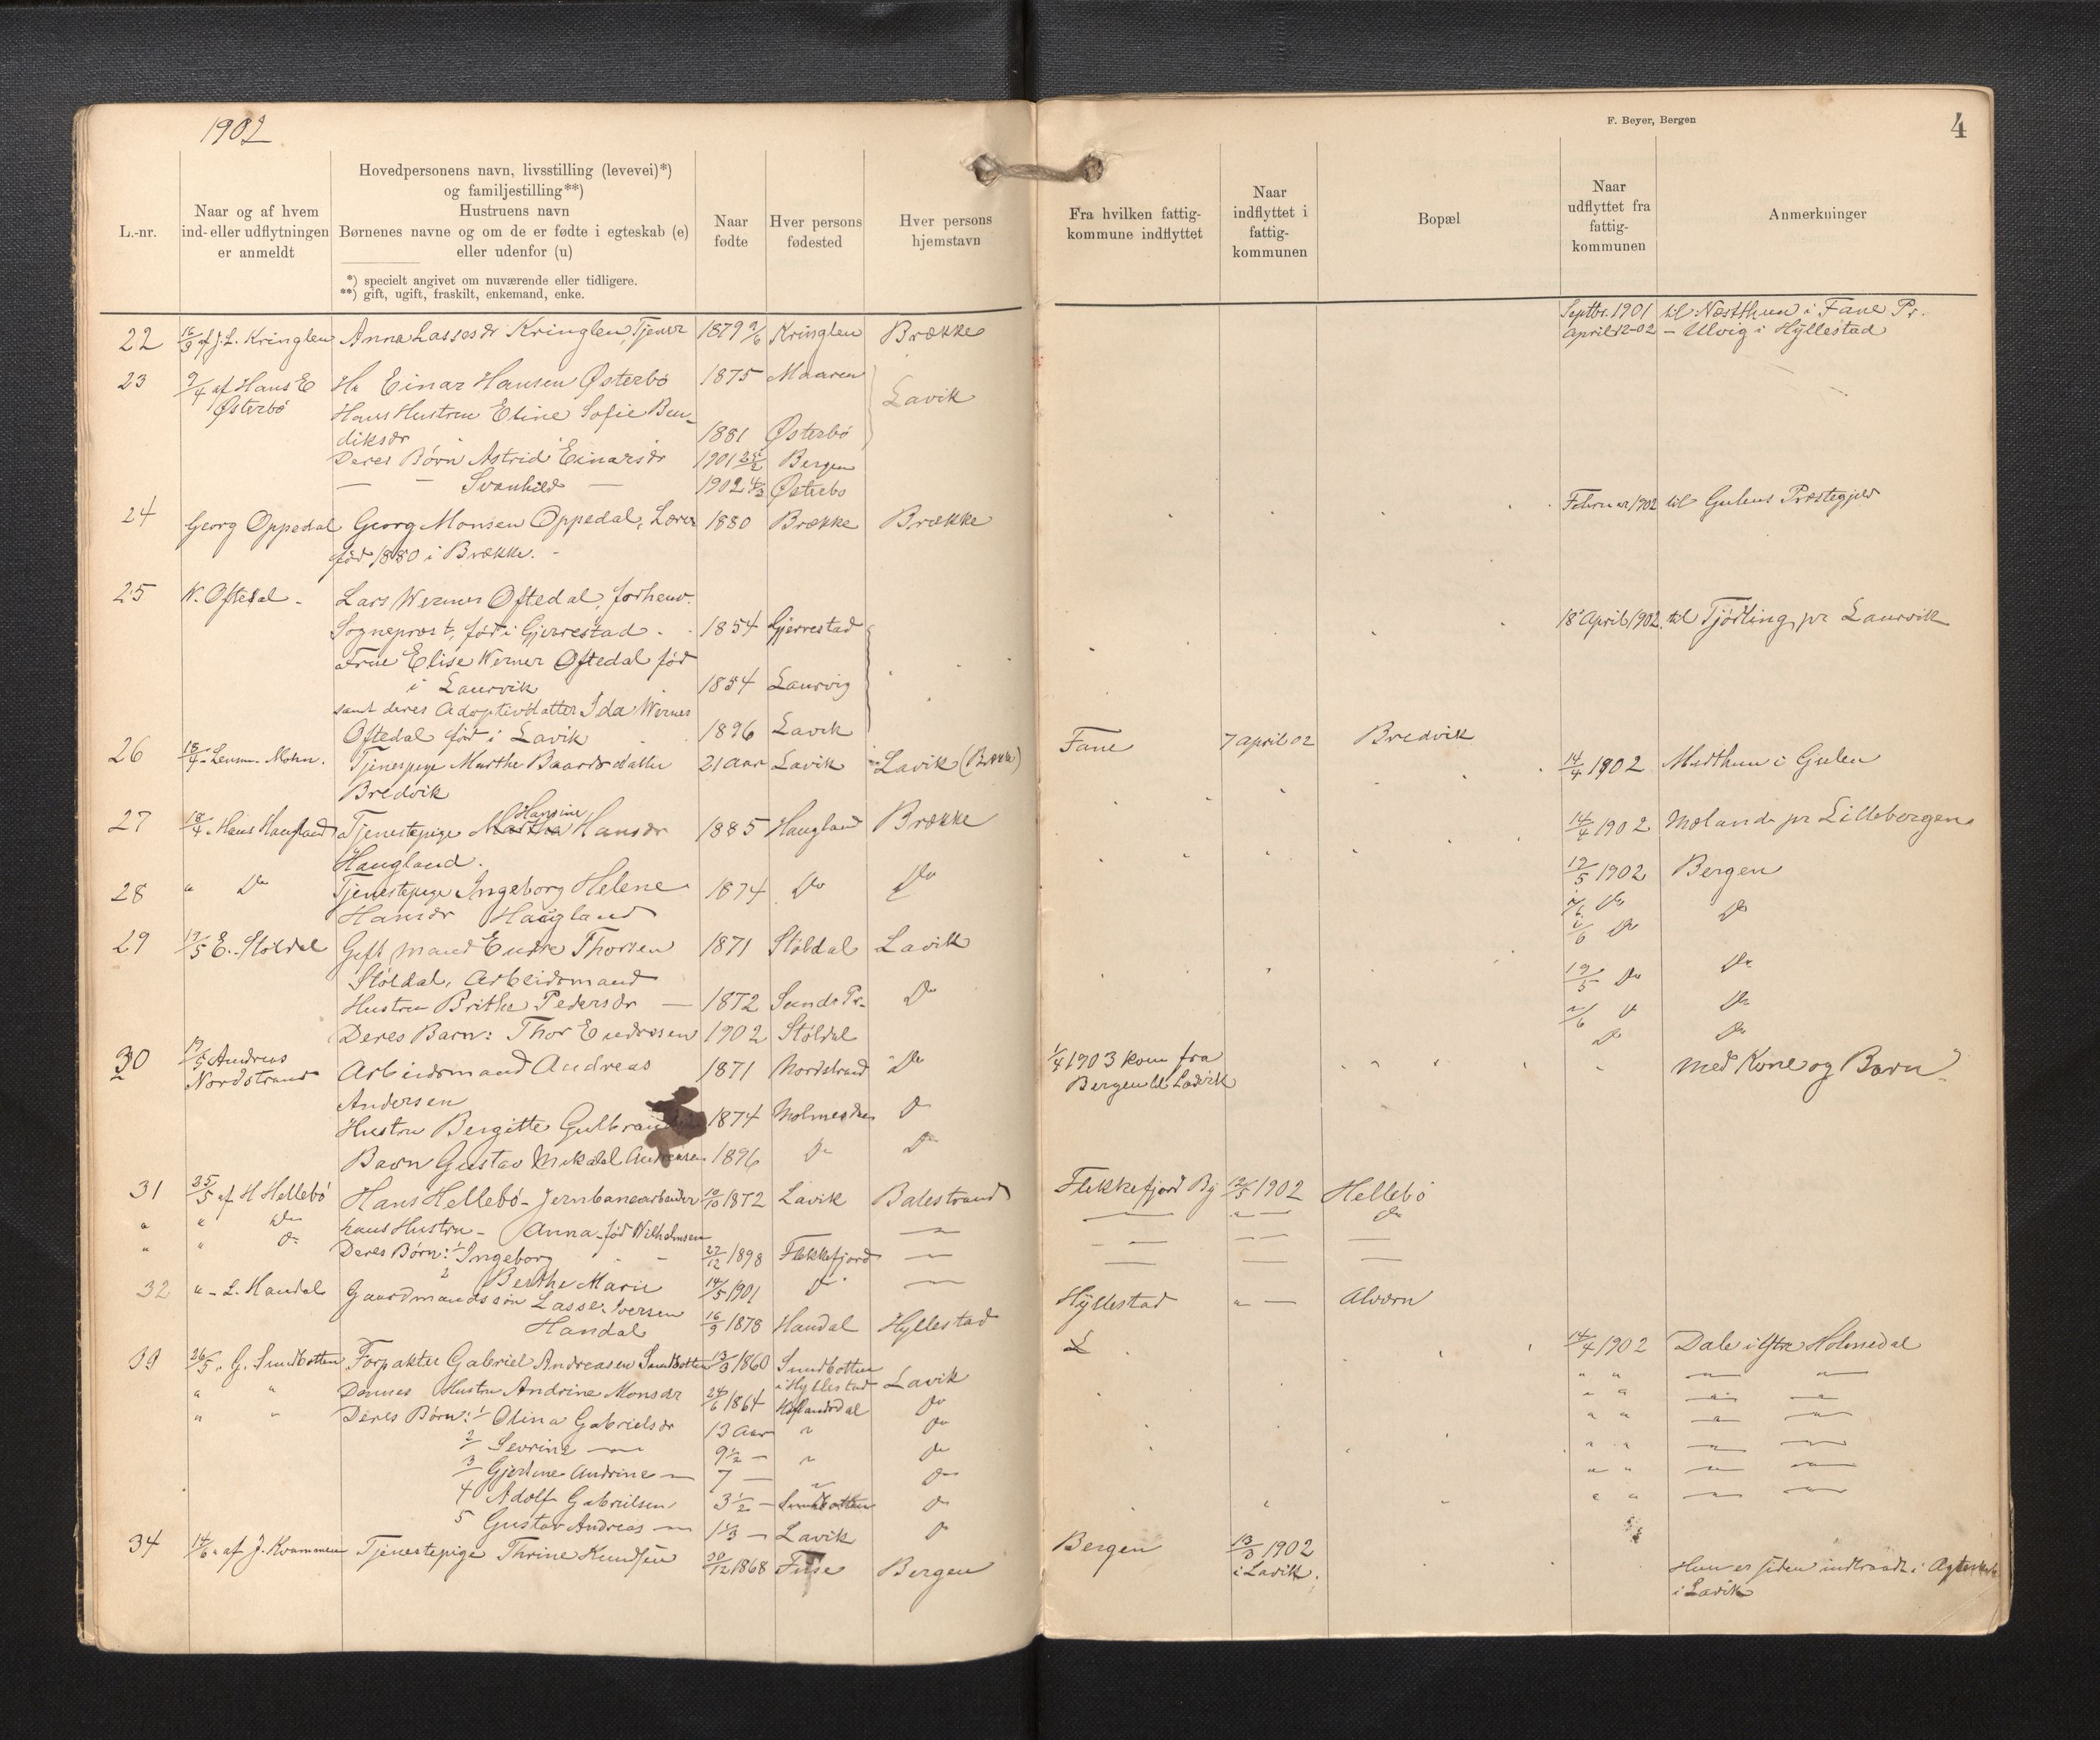 1902
F. Beyer, Bergen
4
L.-nr.
Naar og af hvem
ind- eller udflytningen
er anmeldt
Hovedpersonens navn, livsstilling (levevei)*)
og familjestilling**)
Hustruens navn
Børnenes navne og om de er fødte i egteskab (e)
eller udenfor (u)
*) specielt angivet om nuværende eller tidligere.
**) gift, ugift, fraskilt, enkemand, enke.
Naar
fødte
Hver persons
fødested
Hver persons
hjemstavn
Fra hvilken fattig-
kommune indflyttet
Naar
indflyttet i
fattig-
kommunen
Bopæl
Naar
udflyttet fra
fattig-
kommunen
Anmerkninger
Septbr. 1901 til Næstthun i Fane Pr.
22 16/3 af J. L. Kringlen Anna Lassesdr Kringlen, Tjener 1879 9/6 Kringlen Brække April 12-02 - Ulvig i Hyllestad
23 9/4 af Hans E Hr Einar Hansen Østerbö 1875 Maaren
Østerbö Hans Hustru Eline Sofie Ben- Lavik
diksdr 1881 Østerbö
Deres Børn Astrid Einarsdr 1901 25/2 Bergen
— - Svanhild — 1902 4/3 Østerbo
24 Georg Oppedal Georg Monsen Oppedal, Lærer 1880 Brække Brække Februar 1902 til Gulens Præstegjeld
född 1880 i Brække. -
25 N. Oftedal - Lars Werner Oftedal, forhenv.
Sogneprest, föd i Gjerrestad - 1854 Gjerrestad 18 April 1902 til Tjödling pr Laurvik
Frue Elise Werner Oftedal föd
i Laurvik 1854 Laurvig
samt deres Adoptivdatter Ida Werner
Oftedal föd i Lavik 1896 Lavik
26 18/4 Lensm. Mohn. Tjenestpige Marthe Baardsdatter 21 Aar Lavik Lavik (Brække) Fane 7 april 02 Bredvik 14/4 1902 Midthun i Gulen
Bredvik
27 18/4 Hans Haugland Tjenestepige Hansine Hansdr 1885 Haugland Brække 14/4 1902 Moland pr Lillebergen
Haugland.
28 " Do Tjenestepige Ingeborg Helene 1874 Do Do 19/5 1902 Bergen
Hansdr Haugland
29 19/5 E. Stöldal Gift mand Endre Thorsen 1871 Stöldal Lavik Do Do
Stöldal, Arbeidsmand
Hustru Brithe Pedersdr — 1872 Sunds Pr. Do 19/5 Do Do
Deres Barn: Thor Endresen 1902 Stöldal Do
30 19/5 Andreas Arbeidsmand Andreas 1871 Nordstrand Do 1/4 1903 kom fra Med Kone og Barn
Nordstrand Andersen Bergen til Ladvik
Hustru Bergitte 1874 Holmedal Do
Barn Gustav Mikal Andreasen 1896 Do Do
31 25/5 af H Hellebö Hans Hellebö - Jernbanearbeider 10/10 1872 Lavik Balestrand Flekkefjord By 12/5 1902 Hellebö
" " Do hans Hustru - Anna föd Wilhelmsen — — " — Do
" " Do Deres Børn: 1 Ingeborg 27/12 1898 Flekkefjord — — — —
2 Berthe Marie 14/5 1901 Do — — — —
32 " - L. Handal Gaardmandssön Lasse Iversen 16/9 1878 Handal Hyllestad Hyllestad " — Alværn
Handal
33 26/5 G. Sundbotten Forpakter Gabriel Andreasen Sundbotten 13/3 1860 Sundbotten Lavik 14/4 1902 Dale i Ytre Holmedal
i Hyllestad
" " Dennes Hustru Andrine Monsdr 24/6 1864 Do " " — —
" " Deres Børn: 1 Olina Gabrielsdr 13 Aar " Do " " — —
2 Sevrine — 9½ — " Do " " — —
3 Gjertine Andrine — 7 — " Do " " — —
4 Adolf Gabrielsen 3½ — Sundbotten Do " " — —
5 Gustav Andreas — 1⅓ — Lavik Do " " — —
34 14/6 af J. Kvammen Tjenestepige Thrine Knudsen 30/12 1868 Fuse Bergen Bergen 13/3 1902
i Lavik.
Hun er siden indtraadt i
i Lavik